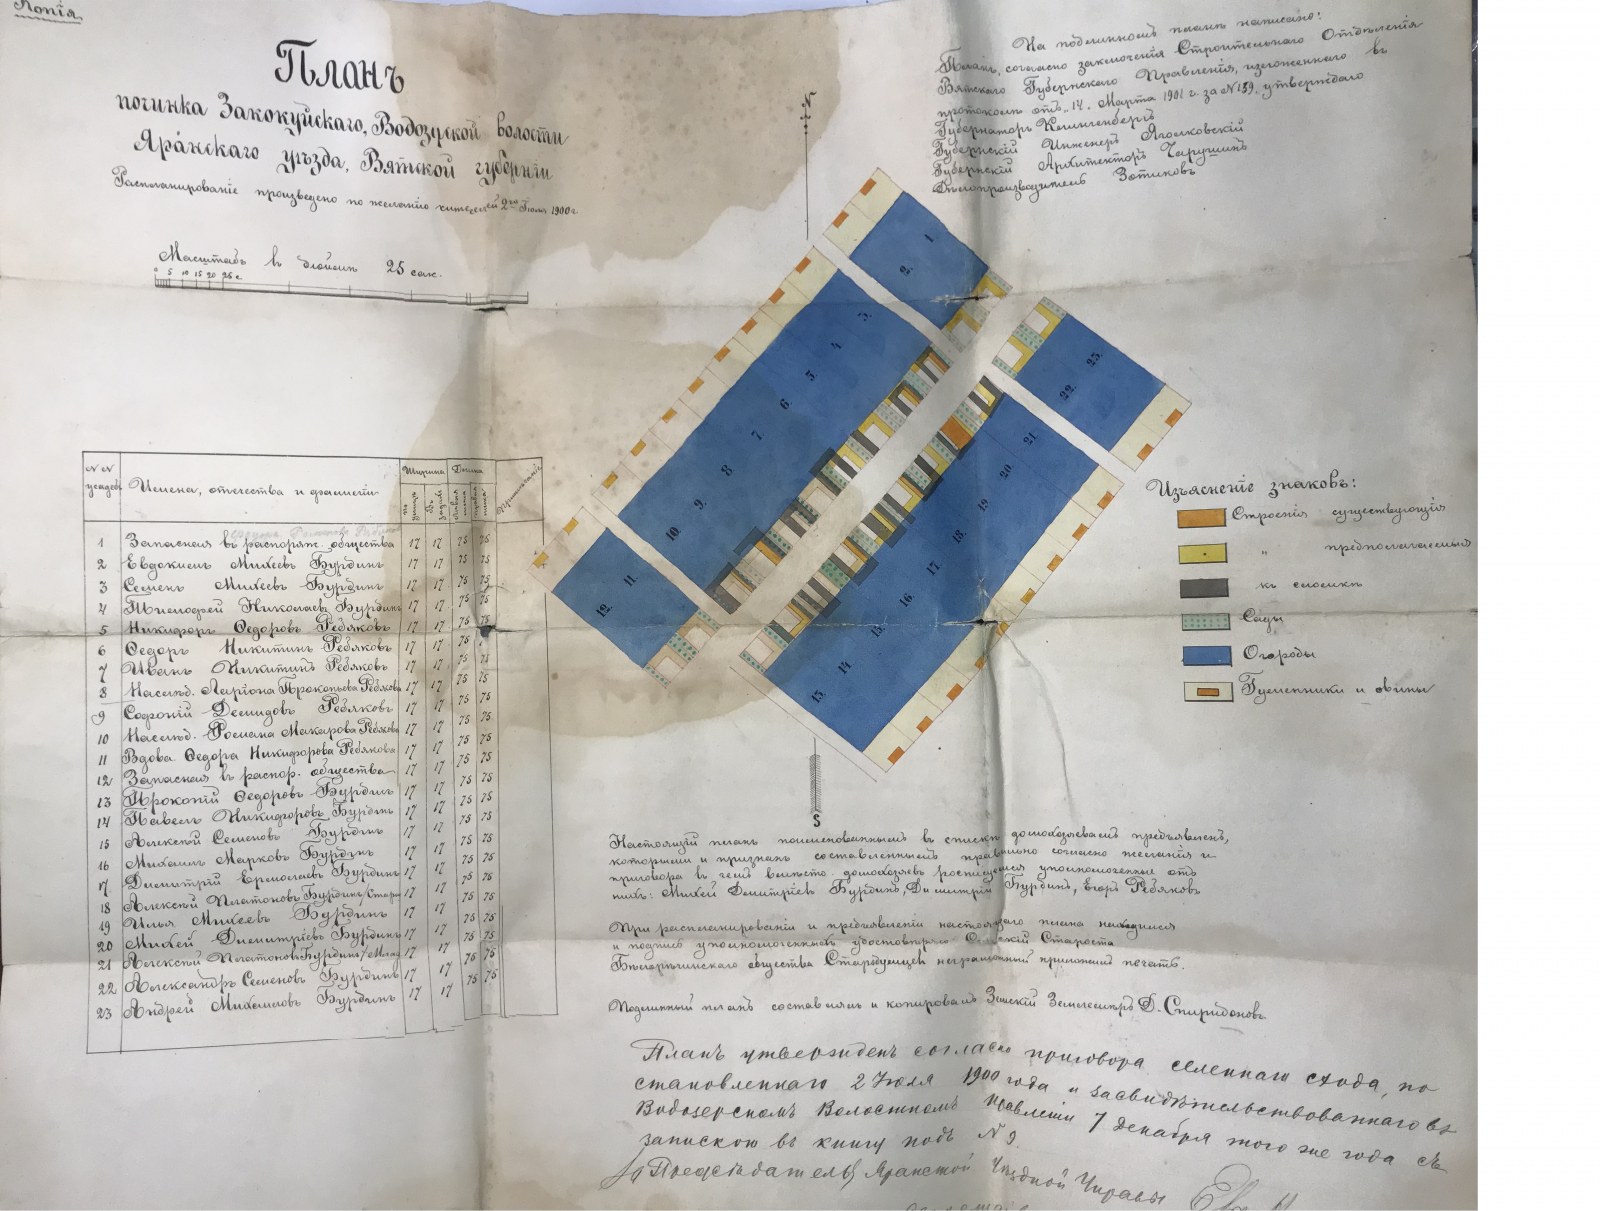 Копія
Планъ
починка Закокуйскаго, Водозерской волости
Яранскаго уѣзда, Вятской губерніи
Распланированіе произведено по желанію жителей 2го Іюля 1900 г
Масштабъ въ дюймѣ 25 саж.
0 5 10 15 20 25 с.
На подлинномъ планѣ написано:
Планъ, согласно заключенія Строительнаго Отдѣленія
Вятскаго Губернскаго Правленія, изложеннаго въ
протоколѣ отъ „14„ Марта 1901 г. за № 159, утверждаю
Губернаторъ Клингенбергъ
Губернскій Инженеръ
Губернскій Архитекторъ Чарушинъ
Дѣлопроизводитель Зотиковъ
1.
2.
3.
4.
5.
6.
7.
8.
9.
10.
11.
12.
13.
14.
15.
16.
17.
18.
19.
20.
21.
22.
23.
S
№№ усадебъ
Имена, отчества и фамиліи
Ширина
Длина
По улицѣ
Въ задахъ
Лѣвая
Правая
Примѣчаніе
1 Запасная въ распоряж. общества 17 17 75 75
2 Евдокимъ Михѣевъ Бурдинъ 17 17 75 75
3 Семенъ Михѣевъ Бурдинъ 17 17 75 75
4 Тимофей Николаевъ Бурдинъ 17 17 75 75
5 Никифоръ Ѳедоровъ Ребяковъ 17 17 75 75
6 Ѳедоръ Никитинъ Ребяковъ 17 17 75
7 Иванъ Никитинъ Ребяковъ 17 17 75 75
8 Наслѣд. Ларіона Прокопьева Ребякова 17 17 75 75
9 Софроній Демидовъ Ребяковъ 17 17 75 75
10 Наслѣд. Романа Макарова Ребякова 17 17 75 75
11 Вдова Ѳедора Никифорова Ребякова 17 17 75 75
12 Запасная въ распор. общества 17 17 75 75
13 Прокопій Ѳедоровъ Бурдинъ 17 17 75 75
14 Павелъ Никифоровъ Бурдинъ 17 17 75 75
15 Алексѣй Семеновъ Бурдинъ 17 17 75 75
16 Михаилъ Марковъ Бурдинъ 17 17 75 75
17 Димитрій Ермолаевъ Бурдинъ 17 17 75 75
18 Алексѣй Платоновъ Бурдинъ/Стар. 17 17 75 75
19 Илья Михѣевъ Бурдинъ 17 17 75 75
20 Михѣй Димитріевъ Бурдинъ 17 17 75 75
21 Алексѣй Платоновъ Бурдинъ/Млад. 17 17 75 75
22 Александръ Семеновъ Бурдинъ 17 17 75 75
23 Андрей Михайловъ Бурдинъ 17 17 75 75
Изъясненіе знаковъ:
Строенія существующія
„ предполагаемыя
къ сломкѣ
Сады
Огороды
Гуменники и овины
Настоящій планъ поименованнымъ въ спискѣ домохозяевамъ предъявленъ,
которыми и признанъ составленнымъ правильно согласно желанія и
приговора въ чемъ вмѣсто домохозяевъ росписуемся уполномоченные отъ
нихъ: Михѣй Димитріевъ Бурдинъ, Димитрій Бурдинъ, Егоръ Ребяковъ
При распланированіи и предъявленіи настоящаго плана находился
и подпись уполномоченныхъ удостовѣряю Сельскій Староста
общества Стародумцевъ неграмотный приложилъ печать.
Подлинный планъ составлялъ и копировалъ Земскій Землемѣръ Д. Спиридоновъ
Планъ утвержденъ согласно приговора селеннаго схода, по
становленнаго 2 Іюля 1900 года и засвидѣтельствованнаго въ
Водозерскомъ Волостномъ Правленіи 7 декабря того же года съ
запискою въ книгу подъ № 9
Предсѣдатель Яранской Уѣздной Управы